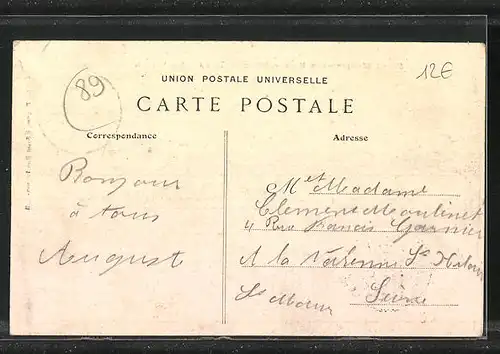 89
12€
UNION POSTALE UNIVERSELLE
CARTE POSTALE
Correspondance
Adresse
Bonjour
à tous
August
M et Madame
Clement Moulinet
4 Rue Francis Garnier
A la Varenne St Hilaire
St Maur Seine